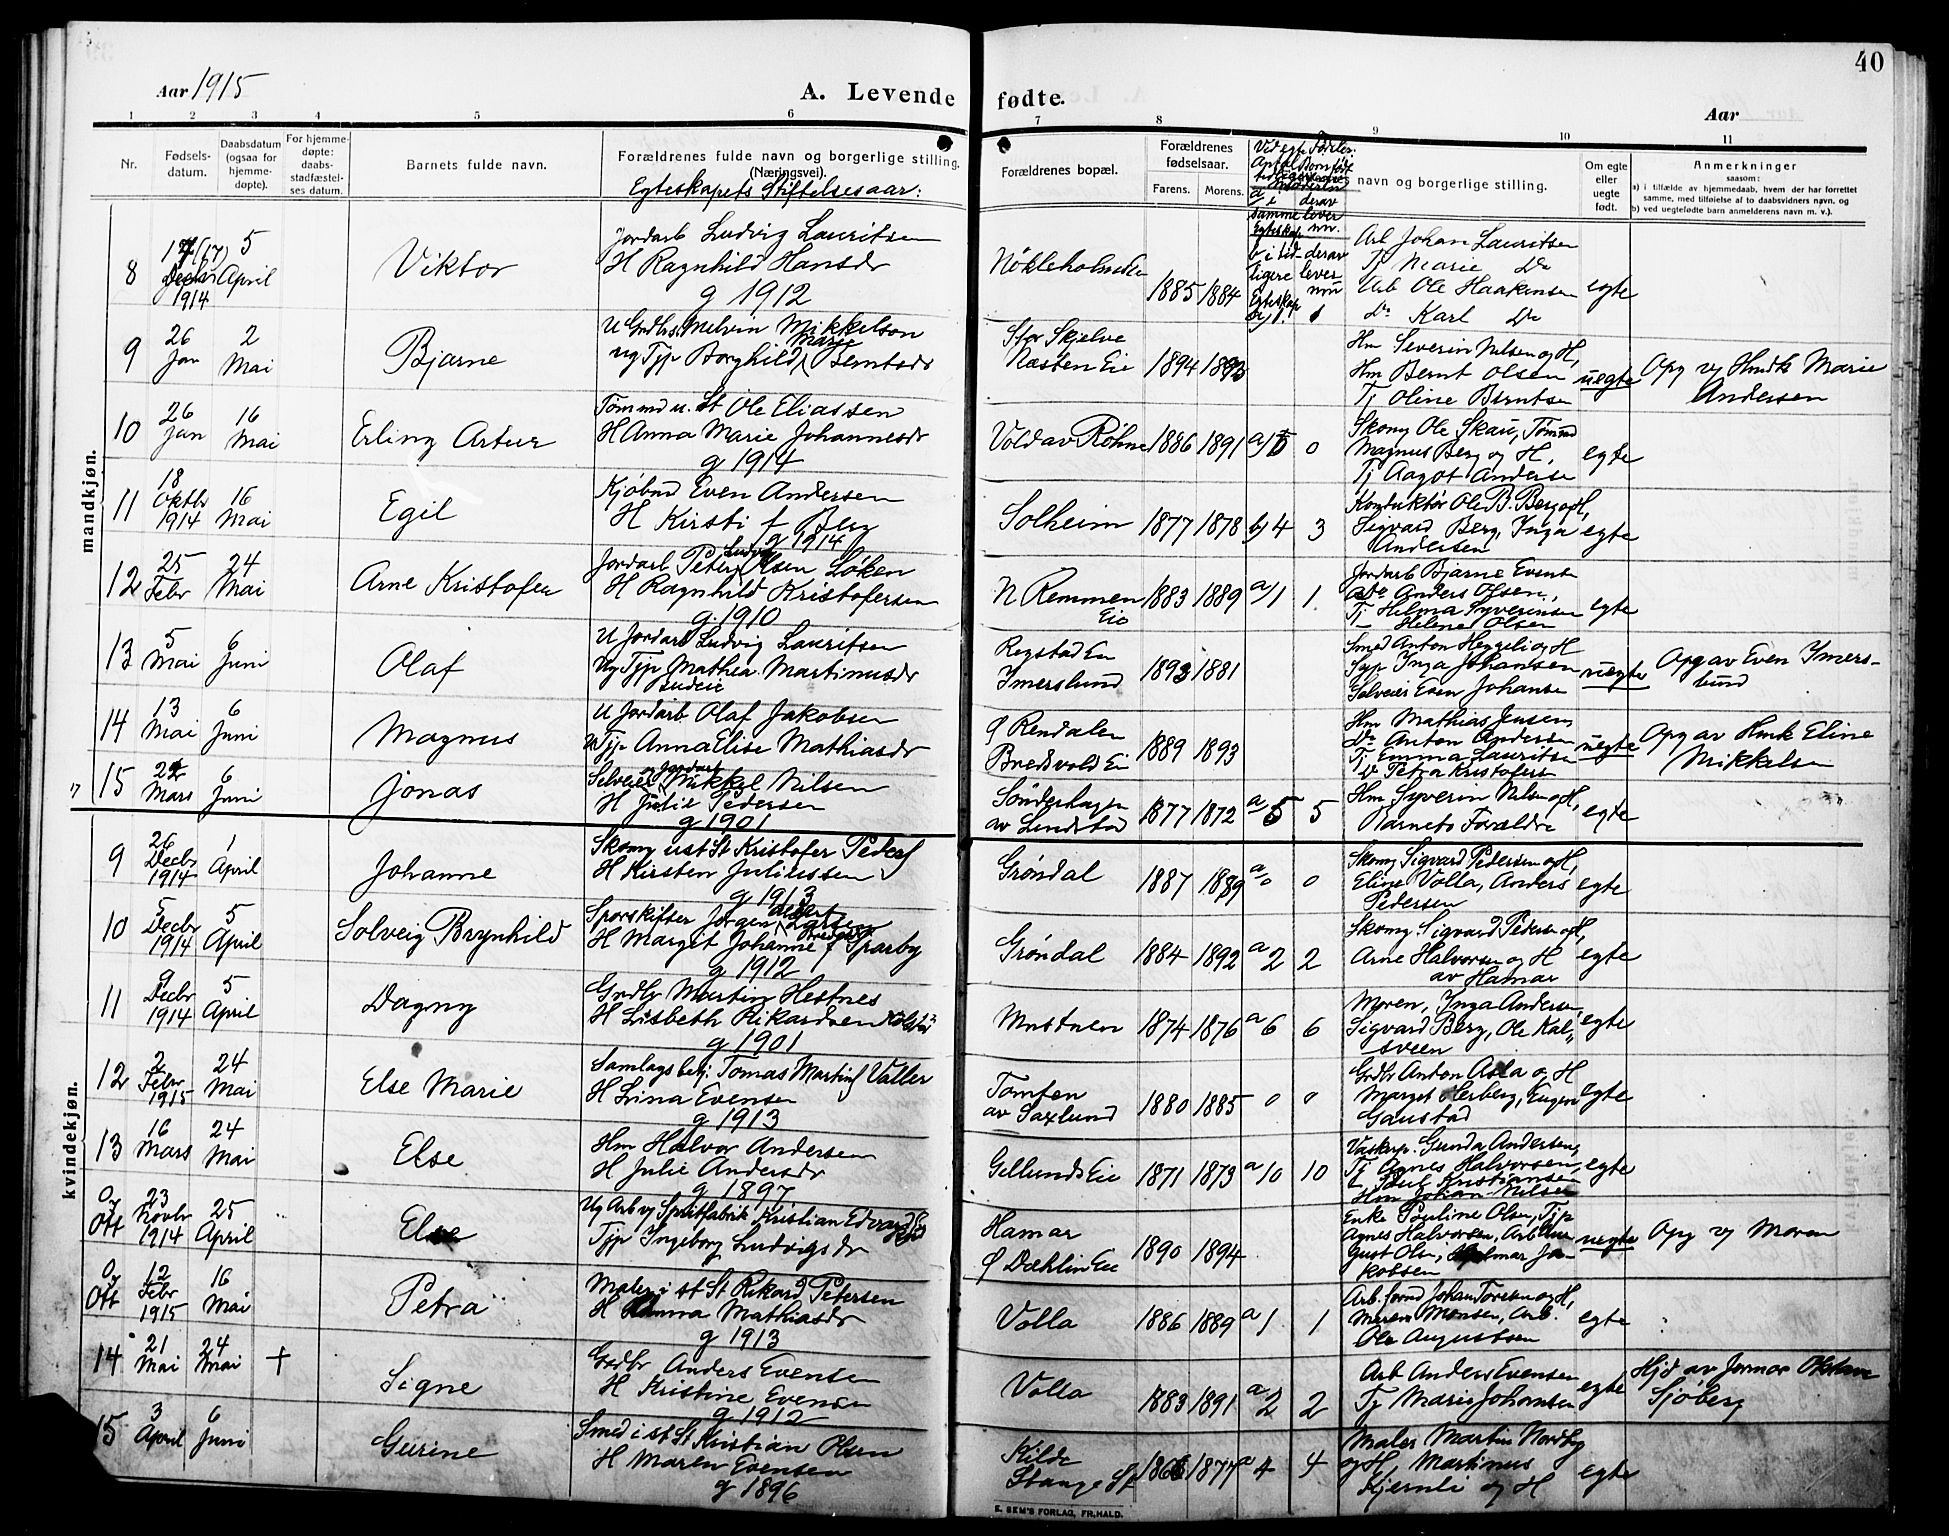 40
Aar 1915
A. Levende fødte.
Aar
1 2 3 4 5 6 7 8 9 10 11
Nr.
Fødsels-
datum.
Daabsdatum
(ogsaa for
hjemme-
døpte).
For hjemme-
døpte:
daabs-
stadfæstel-
ses datum.
Barnets fulde navn.
Forældrenes fulde navn og borgerlige stilling.
(Næringsvei).
Egteskapets Stiftelsesaar:
Forældrenes bopæl.
Forældrenes
fødselsaar.
Farens. Morens.
navn og borgerlige stilling.
Om egte
eller
uegte
født.
Anmerkninger
saasom:
a) i tilfælde av hjemmedaab, hvem der har forrettet
samme, med tilføielse af to daabsvidners navn, og
b) ved uegtefødte barn anmelderens navn m. v.).
mandkjøn.
8 1914 5 April Viktor
Jordarb Ludvig Lauritsen
H Ragnhild Hansdr
g 1912
1885 1884
Arb Johan Lauritsen
Tj Marie Do
Arb Ole Haakensen
Do Karl Do
egte
9 26 Jan 2 Mai Bjarne
U Grdbrs Melvin Mikkelsen
ug Tjp Borghild Marie Berntsdr
Stor Skjelve
Næsten Eie
1894
Hm Severin Nilsen og H,
Hm Bernt Olsen
Tj Oline Berntsen
uegte
Opg v Hmdk Marie
Andersen
10 26 Jan 16 Mai Erling Artur
Tømmd u. St Ole Eliassen
H Anna Marie Johannesdr
g 1914
Vold av Røhne
1886 1891 0
Skom Ole Skau, Tømmd
Magnus Berg og H,
Tj Aagot Anderse
egte
11 18 Oktbr 1914 16 Mai Egil
Kjøbmd Even Andersen
H Kirsti f Berg
g 1914
Solheim
1877 1878 b) 4 3
Konduktør Ole B. Berg og H,
Sigvard Berg, Inga
Andersen
egte
12 25 Febr 24 Mai Arne Kristofer
Jordarb Peter Ludv Olsen Løken
H Ragnhild Kristofersen
g. 1910
N Remmen
Eie
1883 1889 a) 1 1
Jordarb Bjarne Events
Do Anders Olsen,
Tj Helma Syversen
— Helene Olsen
egte
13 5 Mai 6 Juni Olaf
U Jordarb Ludvig Lauritsen
Ug Tjp Mathea Martinusdr
Budeie
Regstad Eie
Imerslund
1893 1881
Smed Anton Heggeli og H
Syp Inga Johansen
Selveier Even Johanse
uegte
Opg av Even Imers-
lund
14 13 Mai 6 Juni Magnus
U Jordarb Olaf Jakobsen
U Tjp Anna Elise Mathiasdr
Ø Rendalen
Bredsvold Eie
1889 1893
Hm Mathias Jensen,
Do Anton Andersen
Tj Emma Lauritsen
Do Petra Kristofers
uegte
Opg av Hmk Eline
Mikkelsen
15 22 Mars 6 Juni Jonas
Selveier og Jordarb Mikkel Nilsen
H Julie Pedersen
g 1901
Sønderhagen
av Lindstad
1877 1872 a 5 5
Hm Syverin Nilsen og H,
Barnets Forældre
egte
kvindekjøn.
9 26 Decbr 1914 1 April Johanne
Skomg u st St Kristofer Peders
H Kirsten Juliussen
g 1913
Grøndal
1887 1889 a 0 0
Skomg Sigvard Pedersen og H,
Eline Volla, Anders
Pedersen
egte
10 5 Decbr 1914 5 April Solveig Brynhild
Sporskifter Jørgen Larsen
H Margit Johanne f Sparby
g 1912
Grøndal
1884 1892 a 2 2
Skomg. Sigvard Pedersen og H,
Arne Halvorsen og H
av Hamar
egte
11 9 Decbr 1914 5 April Dagny
Grdbr Martin Hestnes
H Lisbeth Rikardsen
g 1901
1874 1876 a 6 6
Moren, Inga Andersen,
Sigvard Berg, Ole Kal-
sveen
egte
12 2 Febr 1915 24 Mai Else Marie
Samlagsbetj. Tomas Martins Valler
H Lina Evensen
g 1913
Tomten
av Saxlund
1880 1885 0 0
Grdbr Anton Asla og H
Margit Herberg, Eugen
Gaustad
egte
13 16 Mars 24 Mai Else
Hm Halvor Andersen
H Julie Andersdr
g 1897
Gillunds Eie
1871 1873 a 10 10
Vaskep. Gunda Andersen,
Tj Agnes Halvorsen,
— Paul Kristiansen
Hm Johan Nilsen
egte
Og Ott 23 Novbr 1914 25 April Else
Ug Arb v Spritfabrik Kristian Edvard
Tjp Ingeborg Ludvigsdr
Hamar
Ø Dæhlin Eie
1890 1894
Enke Pauline Olsen, Tjp
Agnes Halvorsen, Arb
Gust Olsen, Hjelmar Ja-
kobsen
uegte
Opg v Moren
Og Ott 12 Febr 1915 16 Mai Petra
Maler i st St Rikard Petersen
H Anna Mathiasdr
g 1913
Volla
1886 1889 a 1 1
Arb.formd Johan Toresen og H,
Maren Monsen, Arb.
Ole Augustsen
egte
14 21 Mai 24 Mai + Signe
Grdbr Anders Evensen
H Kristine Evensen
g 1912
Volla
1883 1891 a 2 2
Arb Anders Evensen
Tj Marie Johansen
egte
Hjd av Jormor Oktava
Sjøberg
15 3 April 6 Juni Gurine
Smed i st St Kristian Olsen
H Maren Evensen
g 1896
Kilde
Stange St
1877 a 4 4
Maler Martin Nordby
og H, Martinus
Kjernli og H
egte
E. SEM'S FORLAG, FR.HALD.